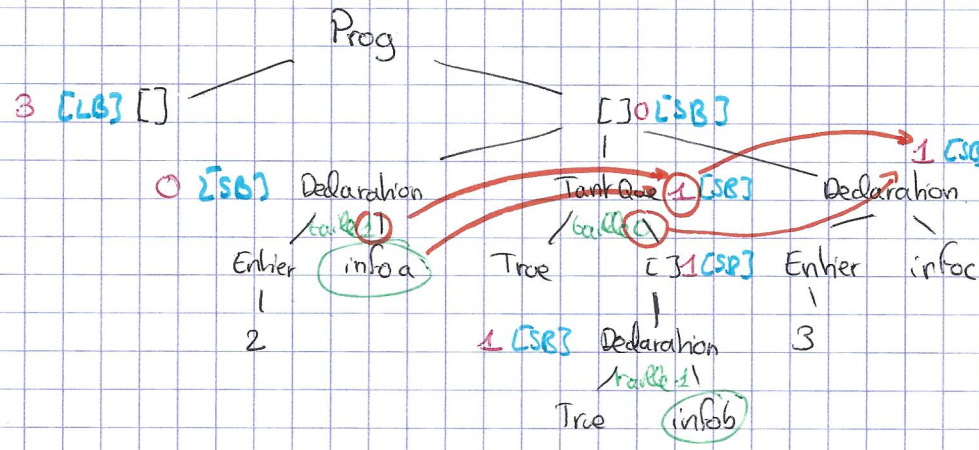 Prog
3 [LB] [] []0[SB]
1 [SB
0 [SB] Declaration TantQue 1 [SB] Declaration
taille 1 taille 0
Entier infoa True []1[SB] Entier infoc
2 1 [SB] Declaration 3
taille 1
True infob